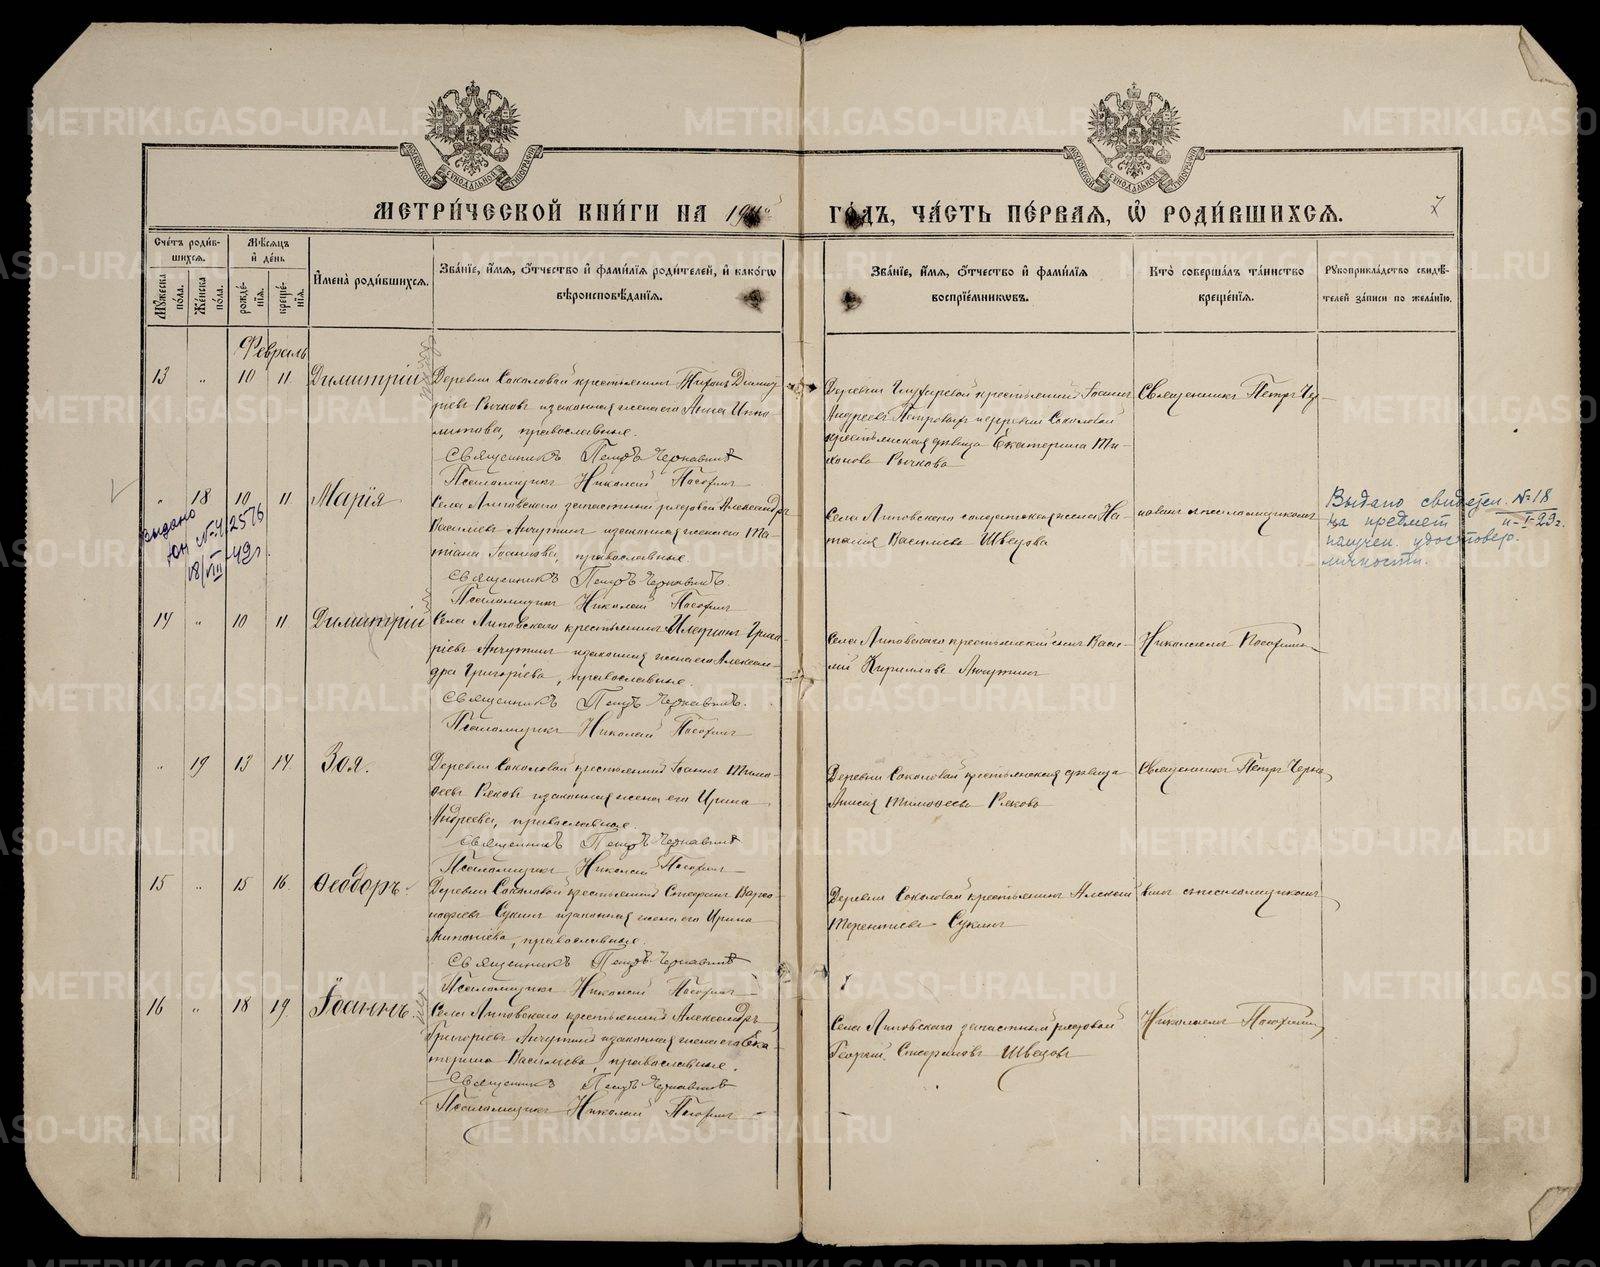 МЕТРИЧЕСКОЙ КНИГИ НА 19
ГОДЪ, ЧАСТЬ ПЕРВАЯ, Ѡ РОДИВШИХСЯ.
7
Счетъ родив-
шихся.
Мѣсяцъ
и день
Мужеска
пола.
Женска
пола.
рожде-
нія.
креще-
нія.
Имена родившихся.
Званіе, имя, отчество и фамилія родителей, и какогѡ
вѣроисповѣданія.
Званіе, имя, отчество и фамилія
воспріемниковъ.
Кто совершалъ таинство
крещенія.
Рукоприкладство свидѣ-
телей записи по желанію.
Февраль
13 " 10 11 Димитрій
Деревни Соколовой крестьянинъ Тихонъ Димит-
ріевъ Рычковъ и законная жена его Анна Иппо-
литова, православные.
Священникъ Петръ Чернавинъ
Псаломщикъ Николай Пасохинъ
Андреевъ и деревни Соколовой
крестьянская дѣвица Екатерина Ти-
хонова Рычкова
Священникъ Петръ Чер-
" 18 10 11 Марія
Села Липовского запасный рядовой Александръ
Васильевъ Анчутинъ и законная жена его Та-
тіана Іоаннова, православные.
Священникъ Петръ Чернавинъ.
Псаломщикъ Николай Пасохинъ
Села Липовского солдатская жена На-
талія Васильева Швецова
навинъ съ псаломщикомъ
Выдано свидетел. №18
на предмет 11-I-23г.
получен. удостовер.
личности.
Выдано
№ 2576
18/VIII-49г.
14 " 10 11 Димитрій
Села Липовского крестьянинъ Григо-
ріевъ Анчутинъ и законная жена его Александ-
дра Григорьева, православные.
Священникъ Петръ Чернавинъ.
Псаломщикъ Николай Пасохинъ
Села Липовского крестьянскій сынъ Васи-
лій Кирилловъ Анчутинъ
Николаемъ Пасохинымъ
" 19 13 14 Зоя.
Деревни Соколовой крестьянинъ Іоаннъ Тимо-
ѳеевъ Ряковъ и законная жена его Ирина
Андреева, православные.
Священникъ Петръ Чернавинъ
Псаломщикъ Николай Пасохинъ
Деревни Соколовой крестьянская дѣвица
Анисія Тимоѳеева Рякова
Священникъ Петръ Черна-
15 " 15 16 Ѳеодоръ.
Деревни Соколовой крестьянинъ Стефанъ Варѳо-
ломеевъ Сукинъ и законная жена его Ирина
Антоніева, православные.
Священникъ Петръ Чернавинъ
Псаломщикъ Николай Пасохинъ
Деревни Соколовой крестьянинъ Алексій
Терентіевъ Сукинъ
винъ съ псаломщикомъ
16 " 18 19 Іоаннъ.
Села Липовского крестьянинъ Александръ
Григорьевъ Анчутинъ и законная жена его Ека-
терина Васильева, православные.
Священникъ Петръ Чернавинъ
Псаломщикъ Николай Пасохинъ
Села Липовского запасный рядовой
Георгій Стефановъ Швецовъ
Николаемъ Пасохинымъ
METRIKI.GASO-URAL.RU